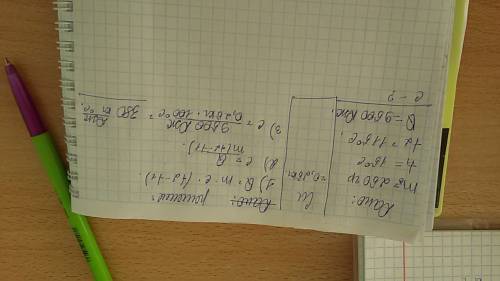 Дано:
m=260 гр
t1 = 15°C
t2 = 115°C,
Q = 9800 Дж.
c - ?
Си
=0,26кг
решение:
1) Q = m · c · (t2-t1)
2) c = Q / m(t2-t1).
3) c = 9800 Дж / 0,26кг · 100°C = 380 Дж / кг °C.